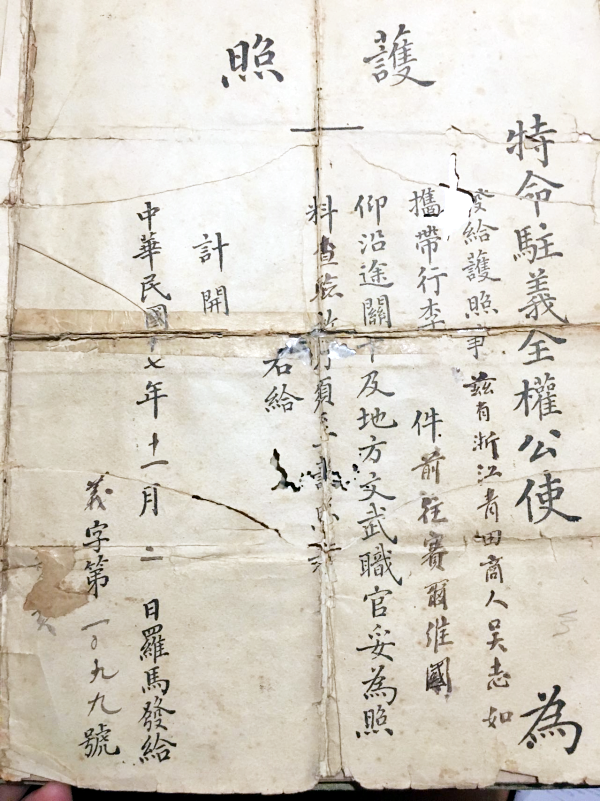 護照
特命駐義全權公使 為
發給護照事茲有浙江青田商人吳志如
攜帶行李 件前往賽爾維國
仰沿途關卡及地方文武職官妥為照
料查驗放行須至護照者
右給
計開
中華民國十七年十一月二日羅馬發給
義字第一〇九九號